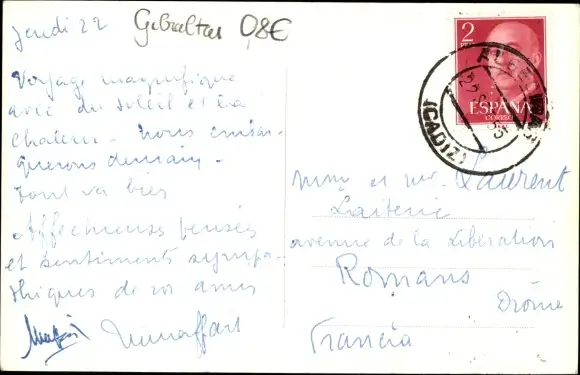 Jeudi 22
Gibraltar 0,8€
Voyage magnifique
avec du soleil et la
chaleur - nous embar-
querons demain -
Tout va bien
Affectueuses pensées
et sentiments sympa-
thiques de vos amis
2
ESPAÑA
CORREOS
(CADIZ)
Mme et Mr. Laurent
Laiterie
avenue de la Libération
Romans
Drôme
Francia